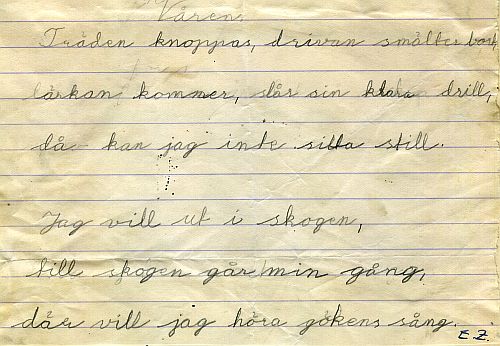 Våren
Träden knoppas, drivan smälter bort,
lärkan kommer, slår sin klara drill,
då kan jag inte sitta still.
Jag vill ut i skogen,
till skogen går min gång,
där vill jag höra gökens sång.
E.Z.